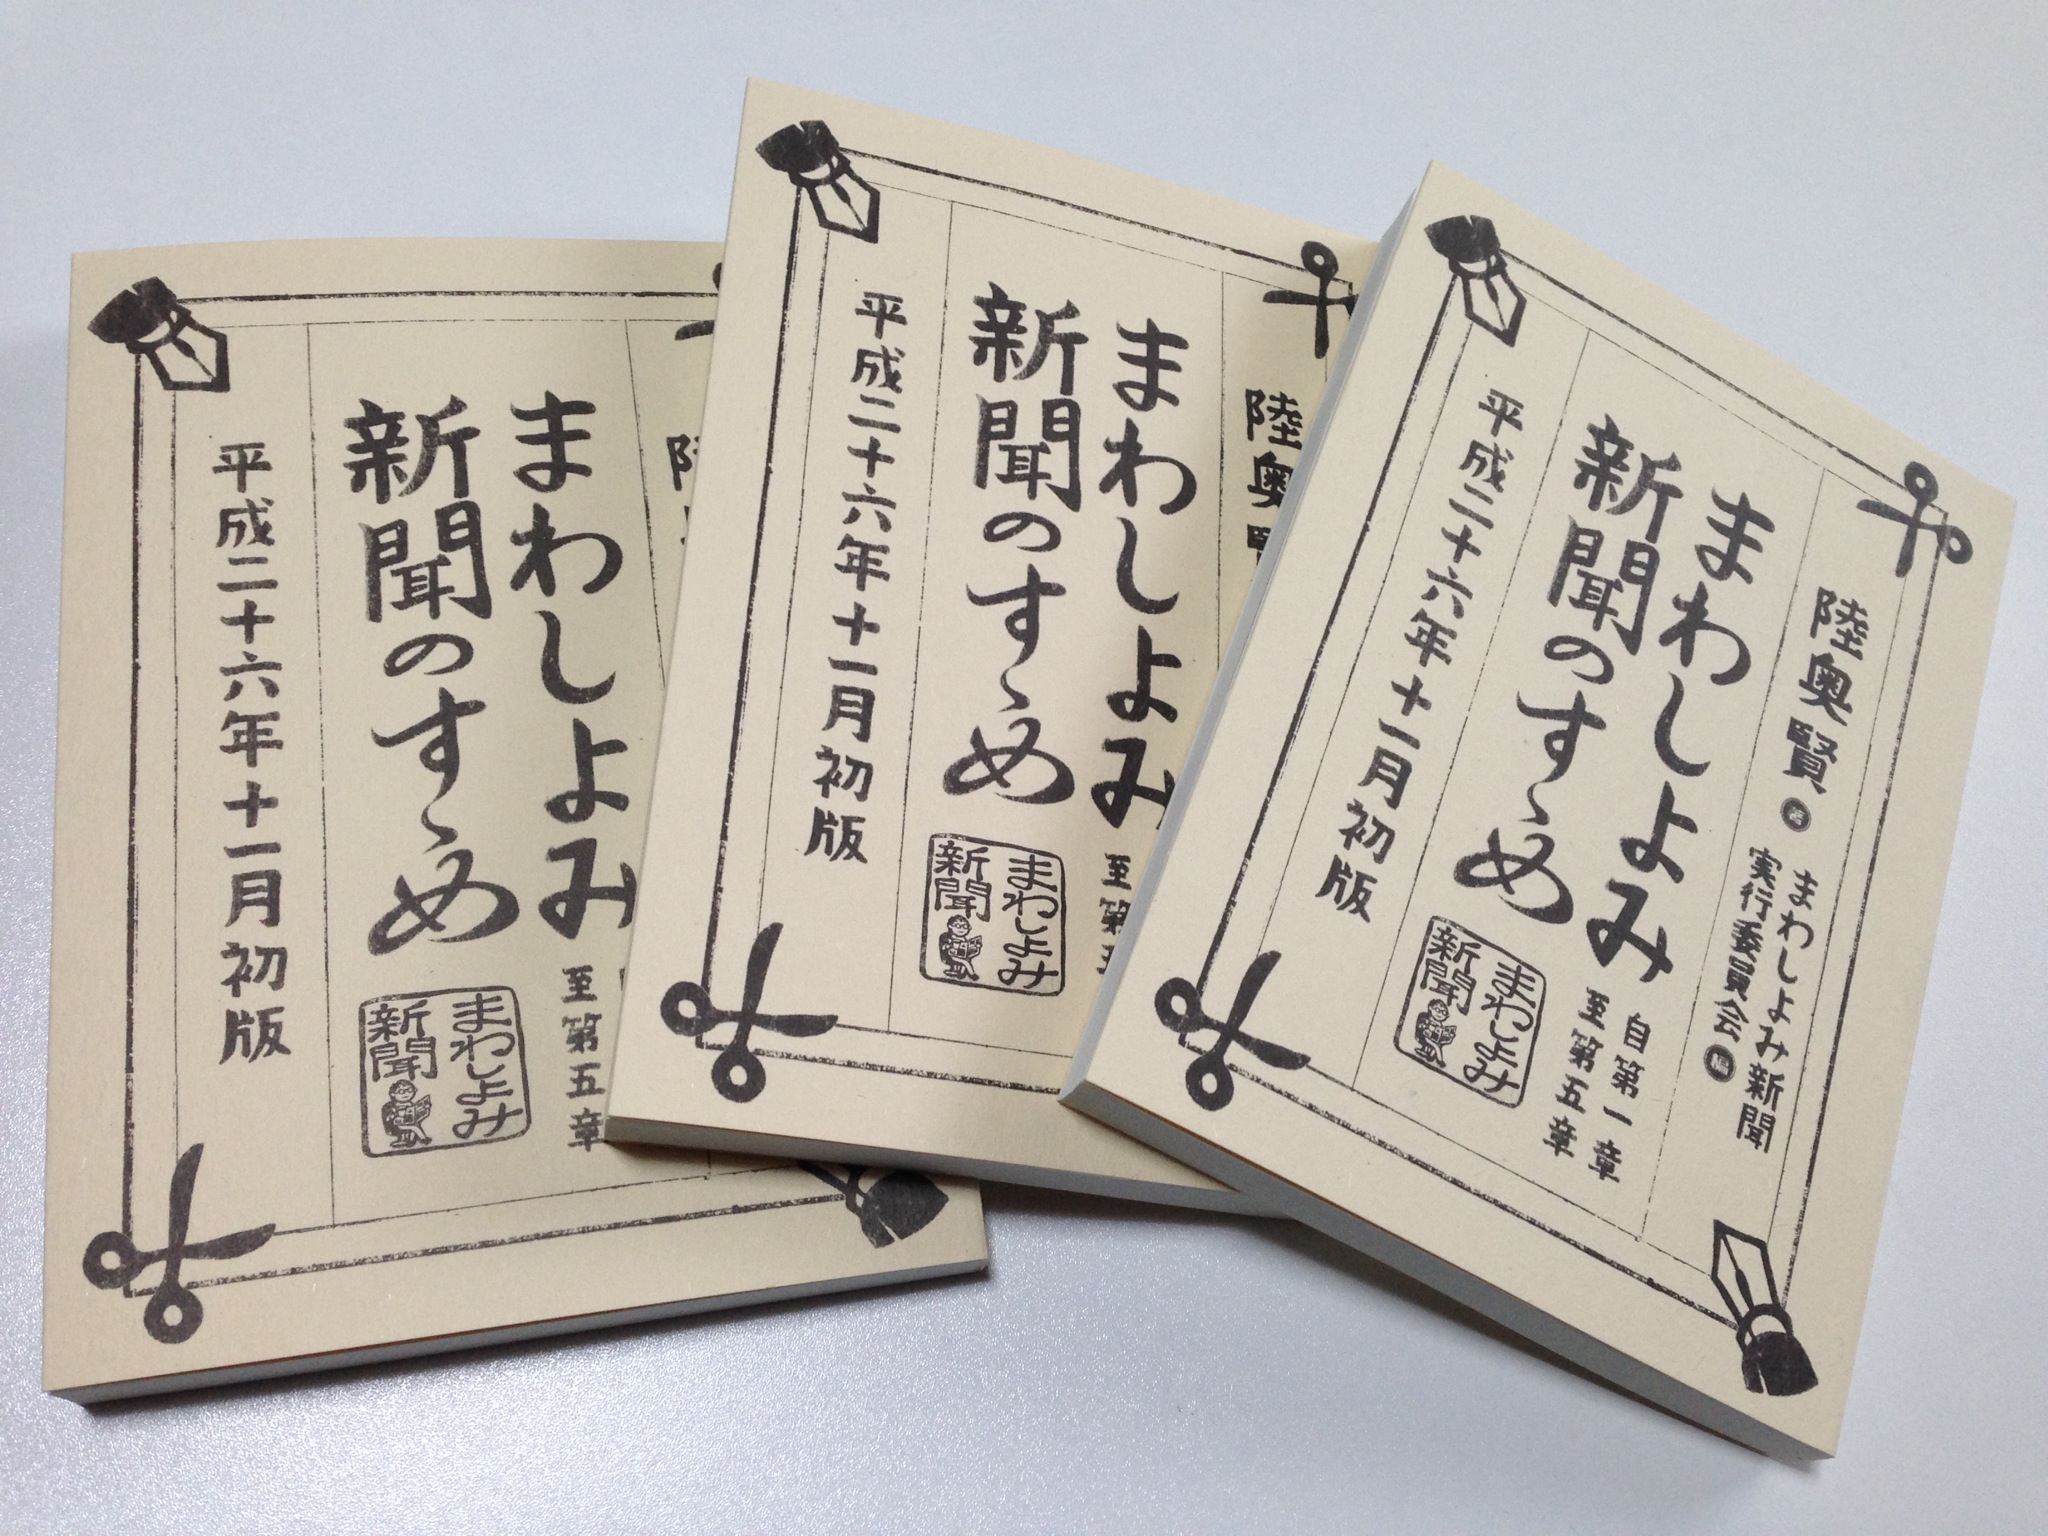 まわしよみ
至第五章
新聞のすゝめ
まわしよみ
新聞
平成二十六年十一月初版
陸奥賢
まわしよみ
至第
新聞のすゝめ
まわしよみ
新聞
平成二十六年十一月初版
陸奥賢
まわしよみ新聞
実行委員会
まわしよみ
自第一章
至第五章
新聞のすゝめ
まわしよみ
新聞
平成二十六年十一月初版